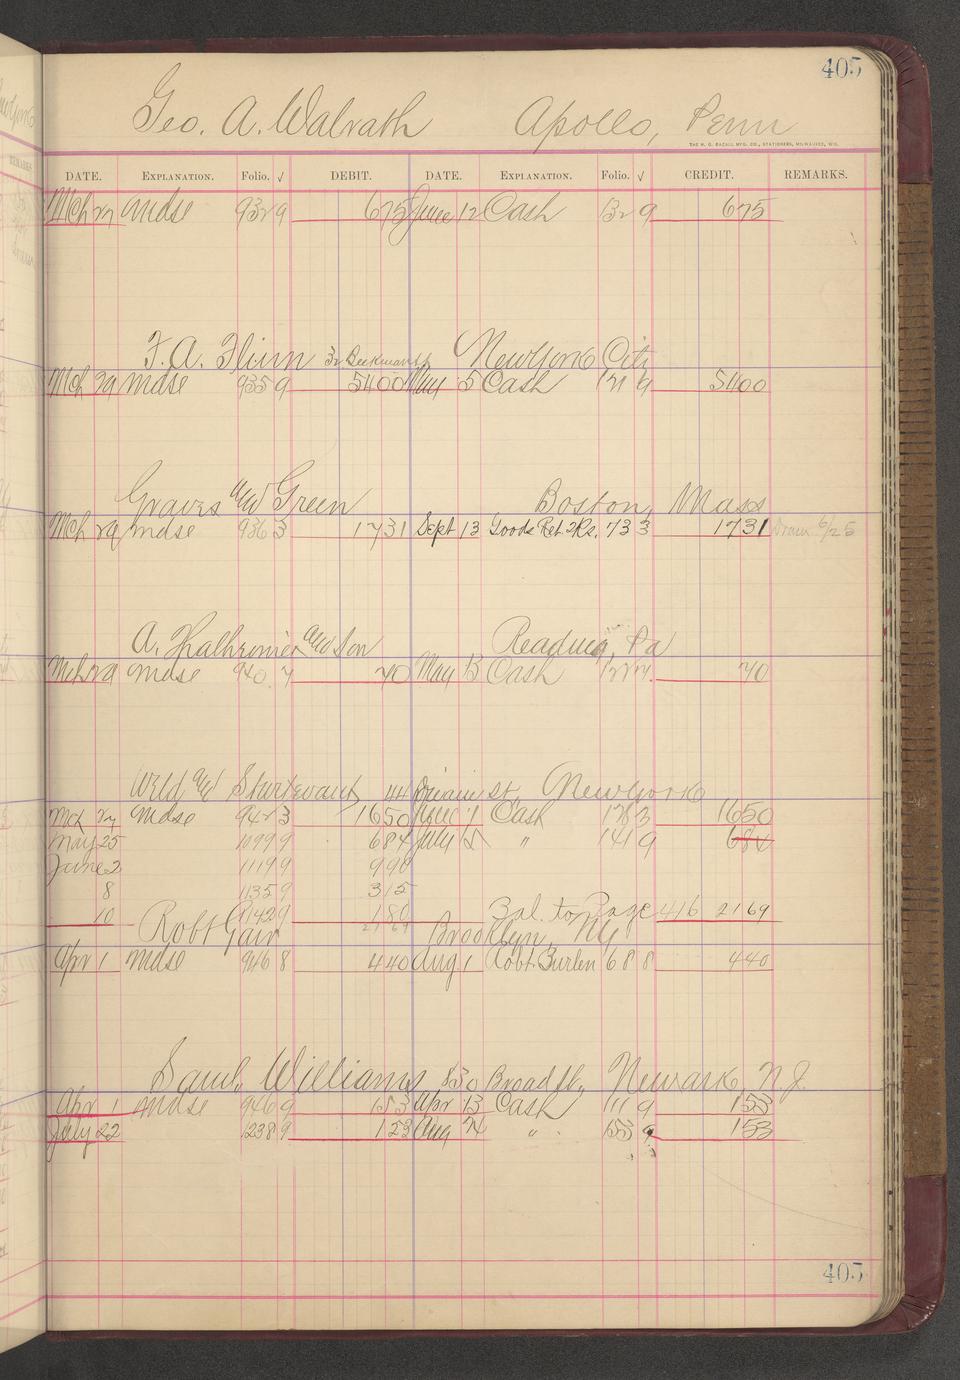 405
Geo. A. Walrath Apollo, Penn
THE H. G. RAZALL MFG. CO., STATIONERS, MILWAUKEE, WIS.
DATE. EXPLANATION. Folio. √ DEBIT. DATE. EXPLANATION. Folio. √ CREDIT. REMARKS.
Mch 27 Mdse 932 9 675 June 12 Cash 132 9 675
F. A. Flinn 32 Beekman St New York City
Mch 29 Mdse 935 9 5400 May 5 Cash 121 9 5400
Graves and Green Boston, Mass
Mch 29 Mdse 936 3 1731 Sept 13 Goods Ret. 2Rs. 73 3 1731 Drawn 6/25
A. and Son Reading, Pa
Mch 29 Mdse 940 7 70 May 13 Cash 70
Weld and Sturtevant 44 St. New York
Mch 27 Mdse 942 3 1650 June 1 Cash 128 3 1650
May 25 1099 9 684 July 5 " 141 9 684
June 2 1119 9 990
8 1135 9 315
10 1142 9 180 Bal. to Page 416 2169
2169
Robt Gair Brooklyn, NY
Apr 1 Mdse 946 8 440 Aug 1 Robt. 68 8 440
Saml. Williams, 830 Broad St., Newark, N.J.
Apr 1 Mdse 946 9 153 Apr 13 Cash 111 9 153
July 22 1238 9 153 Aug 24 " 153 9 153
405